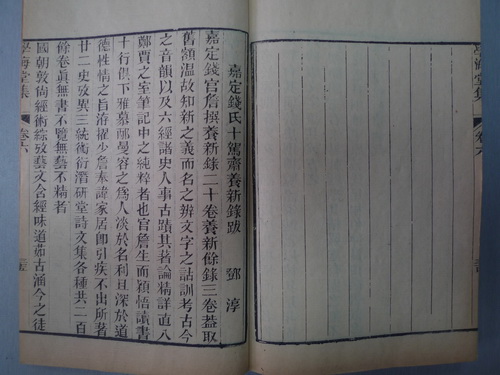 學海堂集
卷六
嘉定錢氏十駕齋養新錄跋 鄧淳
嘉定錢官詹撰養新錄二十卷養新餘錄三卷葢取
舊額溫故知新之義而名之辨文字之詁訓考古今
之音韻以及六經諸史人事古蹟其著論精詳直入
鄭賈之室筆記中之純粹者也官詹生而穎悟讀書
十行俱下雅慕邴曼容之爲人淡於名利且深於道
德性情之旨洊擢少詹奉諱家居卽引疾不出所著
廿二史攷異三統術衍潛研堂詩文集各種共一百
餘卷眞無書不覽無藝不精者
國朝敦尙經術綜攷藝文含經味道茹古涵今之徒
學海堂集
卷六